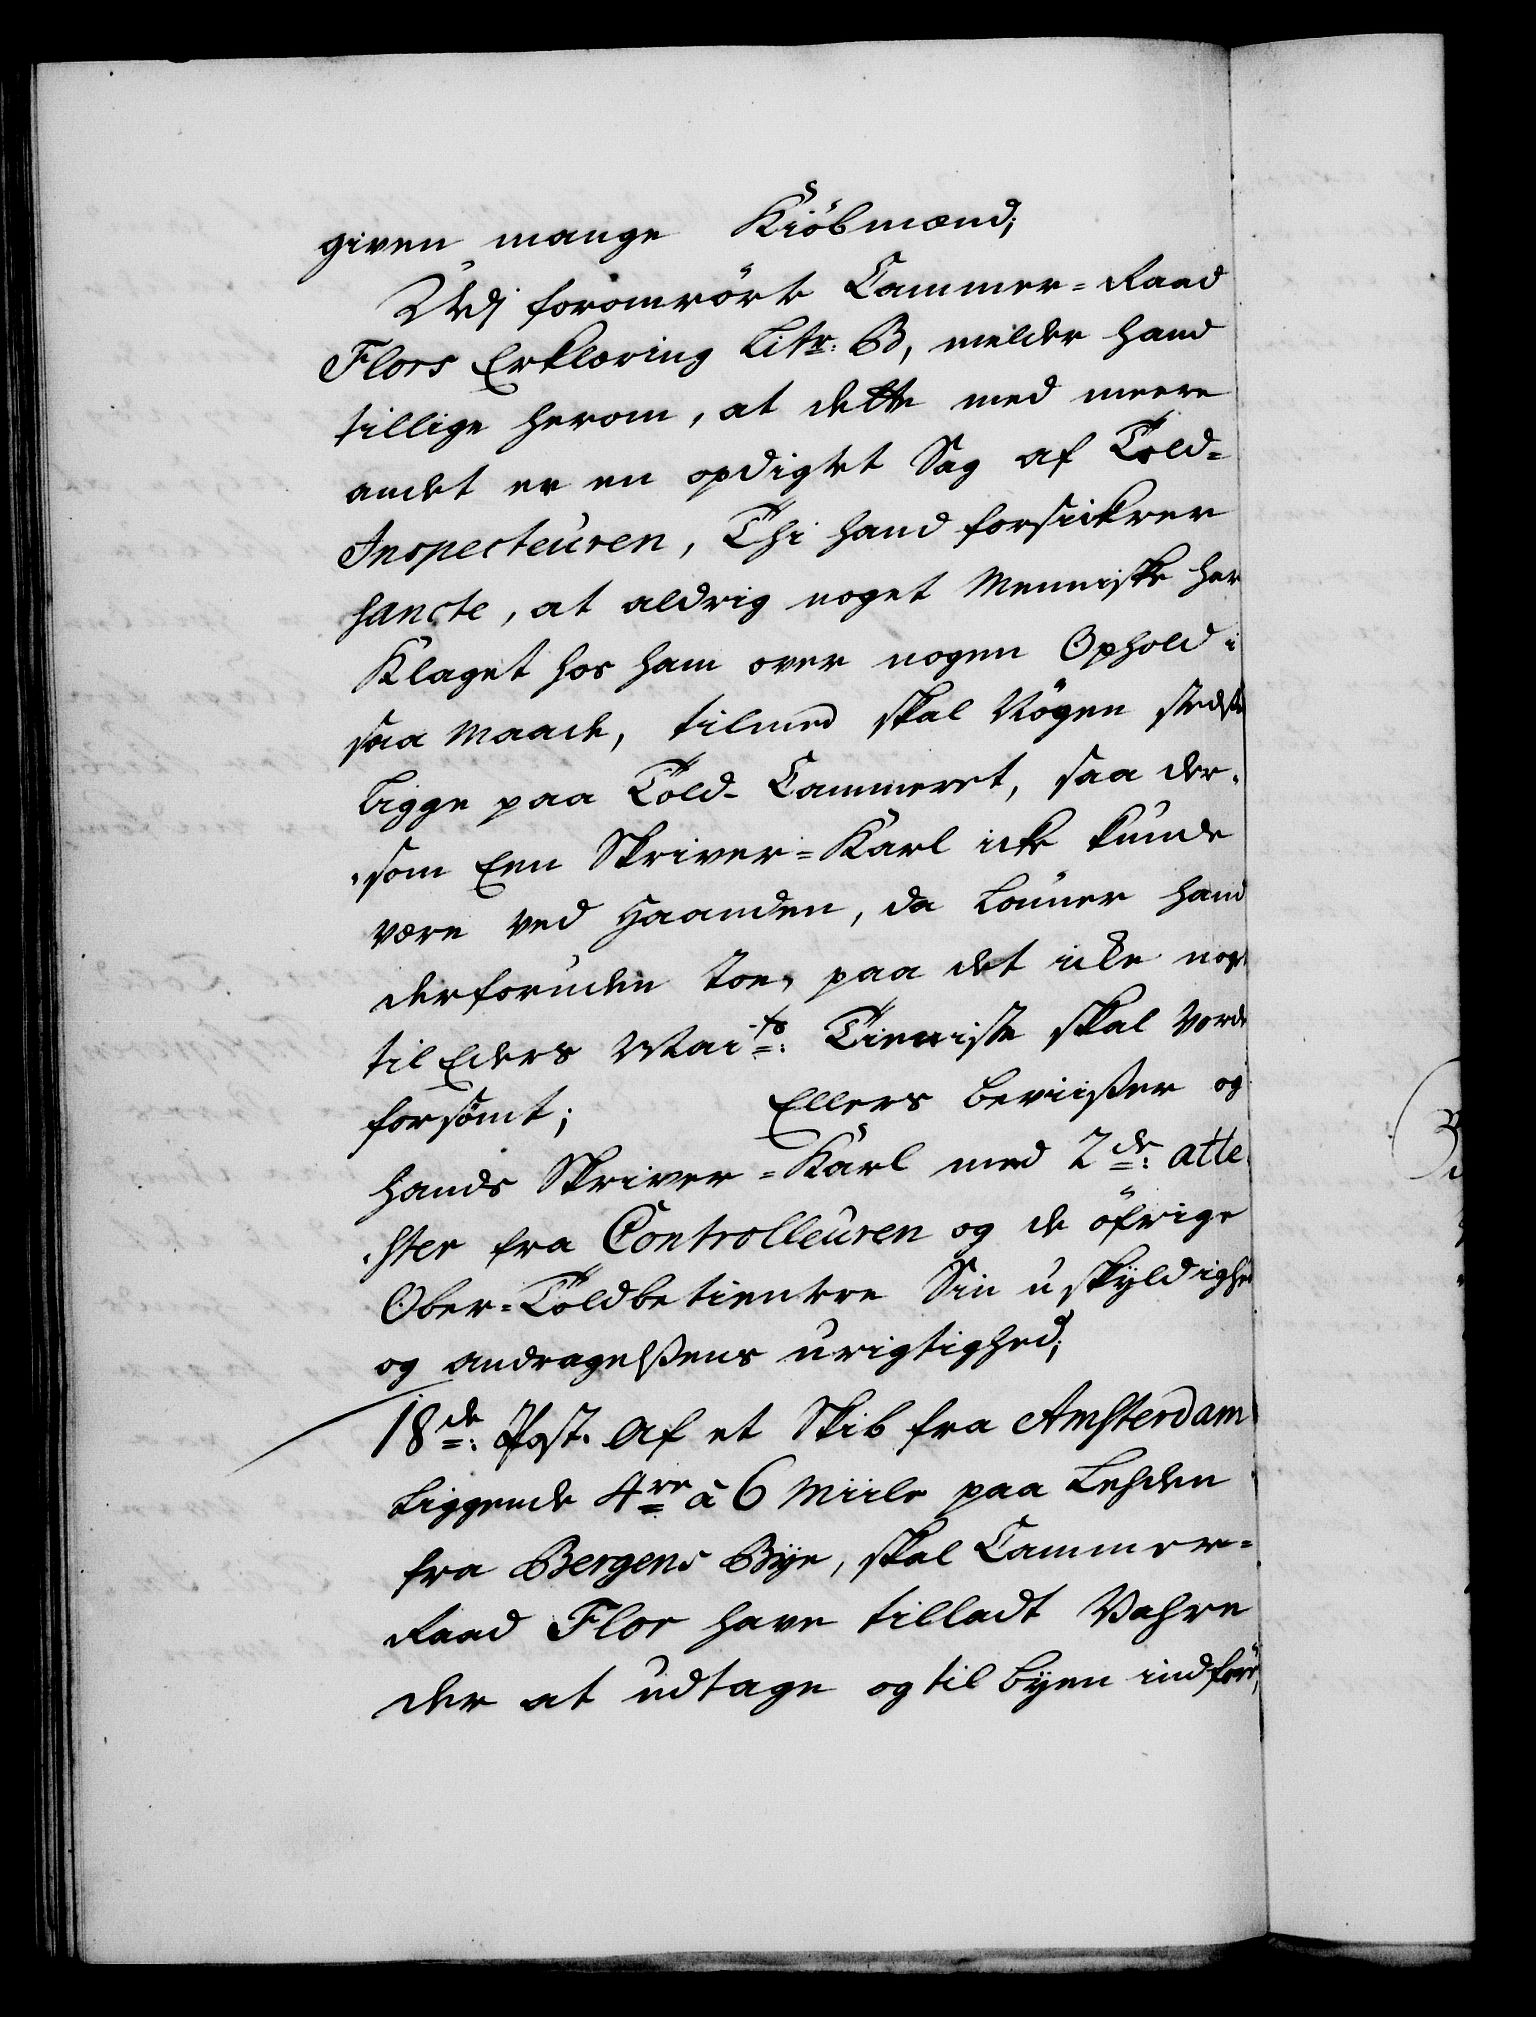 given mange Kiöbmænd;
Udj foromrörte Cammer=Raad
Flors Erklæring Litr: B, melder hand
tillige herom, at dette med meere
andet er en opdigtet Sag af Told=
Inspecteuren, Thi hand forsickrer
sancte, at aldrig noget Menniske har
Klaget hos ham over nogen Ophold i
saa Maade, tilmed skal Nögen stedse
ligge paa Told-Cammeret, saa der-
som Een Skriver=Karl icke kunde
være ved Haanden, da Lönner hand
derforuden toe, paa det icke noget
til Eders Maits: Tieniste skal vorde
forsömt; Ellers beviiser og
hands Skriver=Karl med 2de: atte-
ster fra Controlleuren og de öfrige
Ober=Toldbetientere Sin uskyldighed
og andragelsens urigtighed;
18de: Post. Af et Skib fra Amsterdam
liggende 4re à 6 Miile paa Leeden
fra Bergens Bye, skal Cammer=
Raad Flor have tilladt Vahre
der at udtage og til byen indföre,